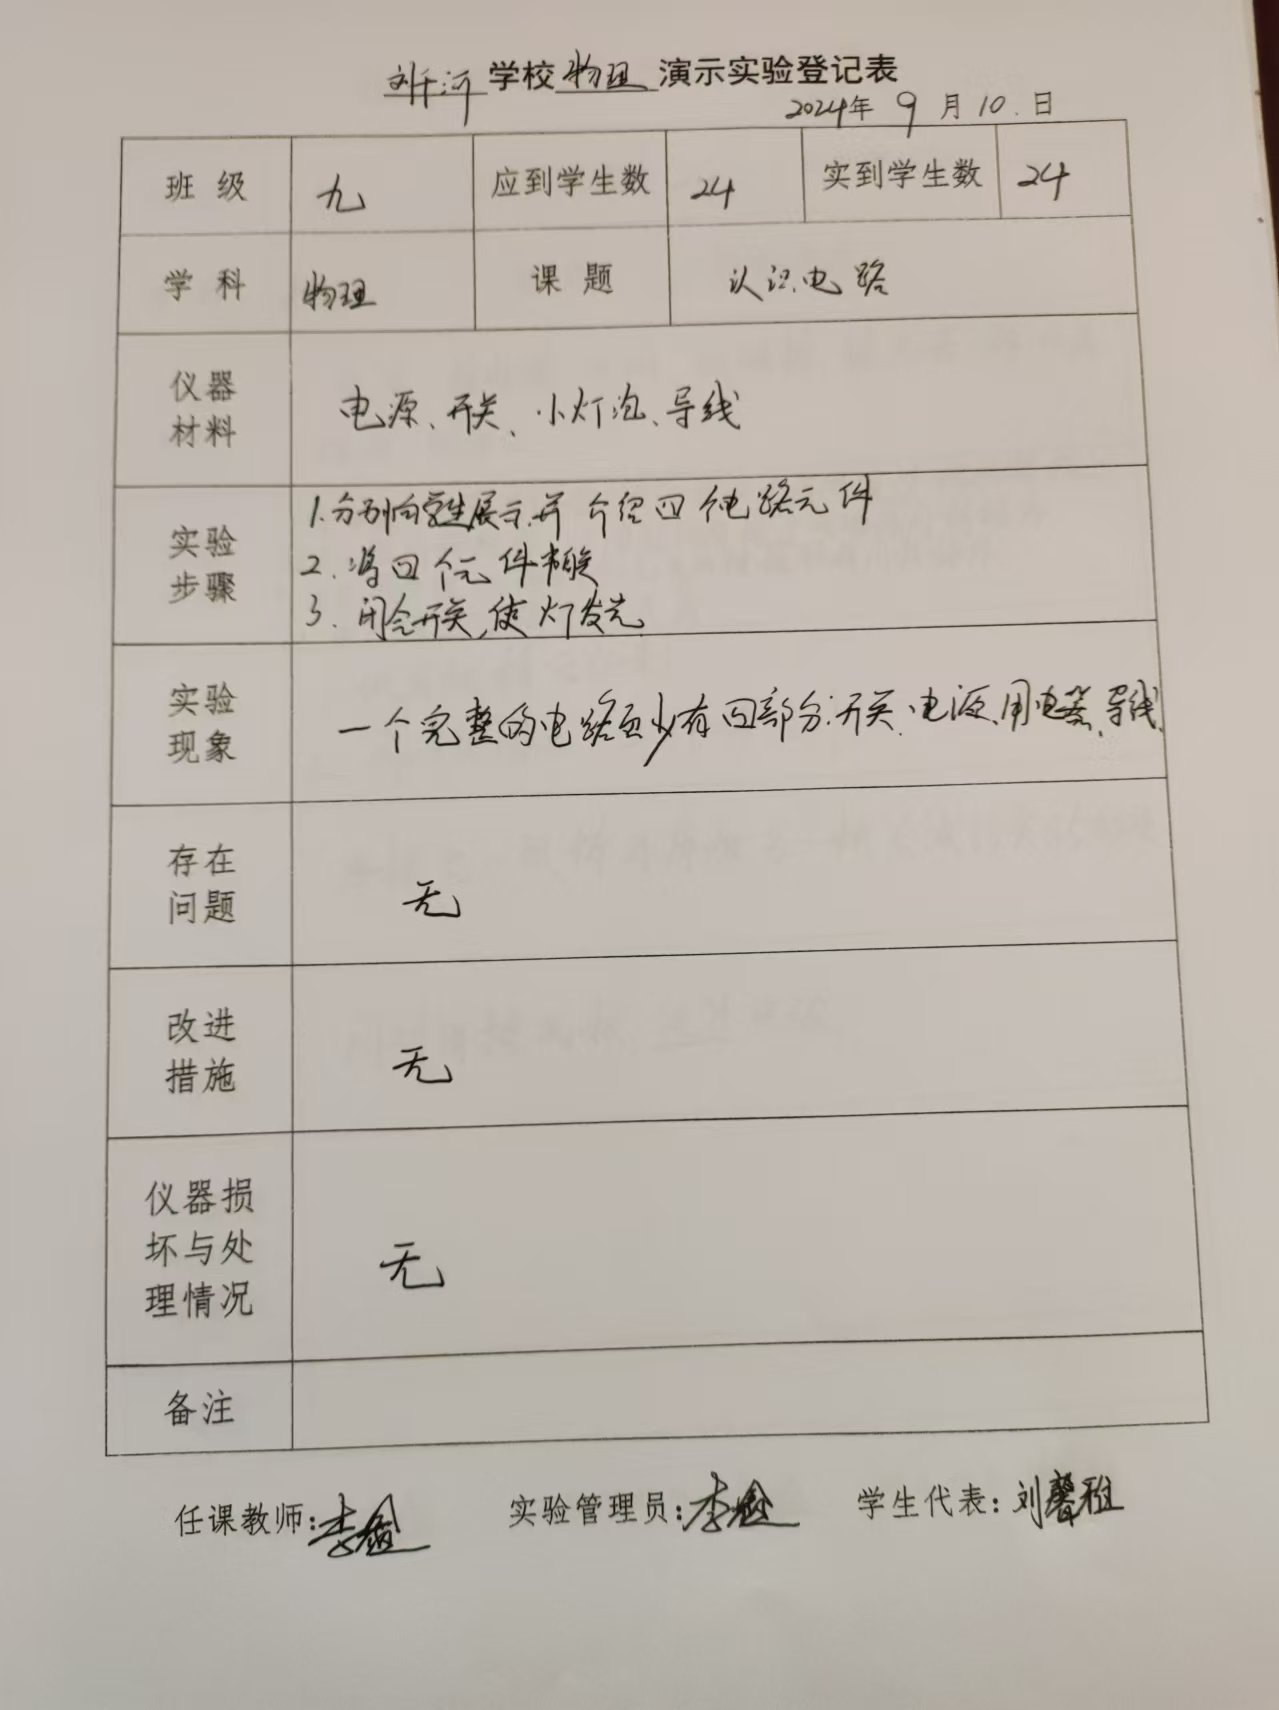 刘千河学校物理演示实验登记表
2024年9月10.日
班级 九 应到学生数 24 实到学生数 24
学科 物理 课题 认识电路
仪器
材料
电源、开关、小灯泡、导线
实验
步骤
1.分别向学生展示并介绍四个电路元件
2.将四个元件串联
3.闭合开关,使灯发光
实验
现象
一个完整的电路至少有四部分:开关、电源、用电器、导线.
存在
问题
无
改进
措施
无
仪器损
坏与处
理情况
无
备注
任课教师:李 实验管理员:李 学生代表:刘馨雅